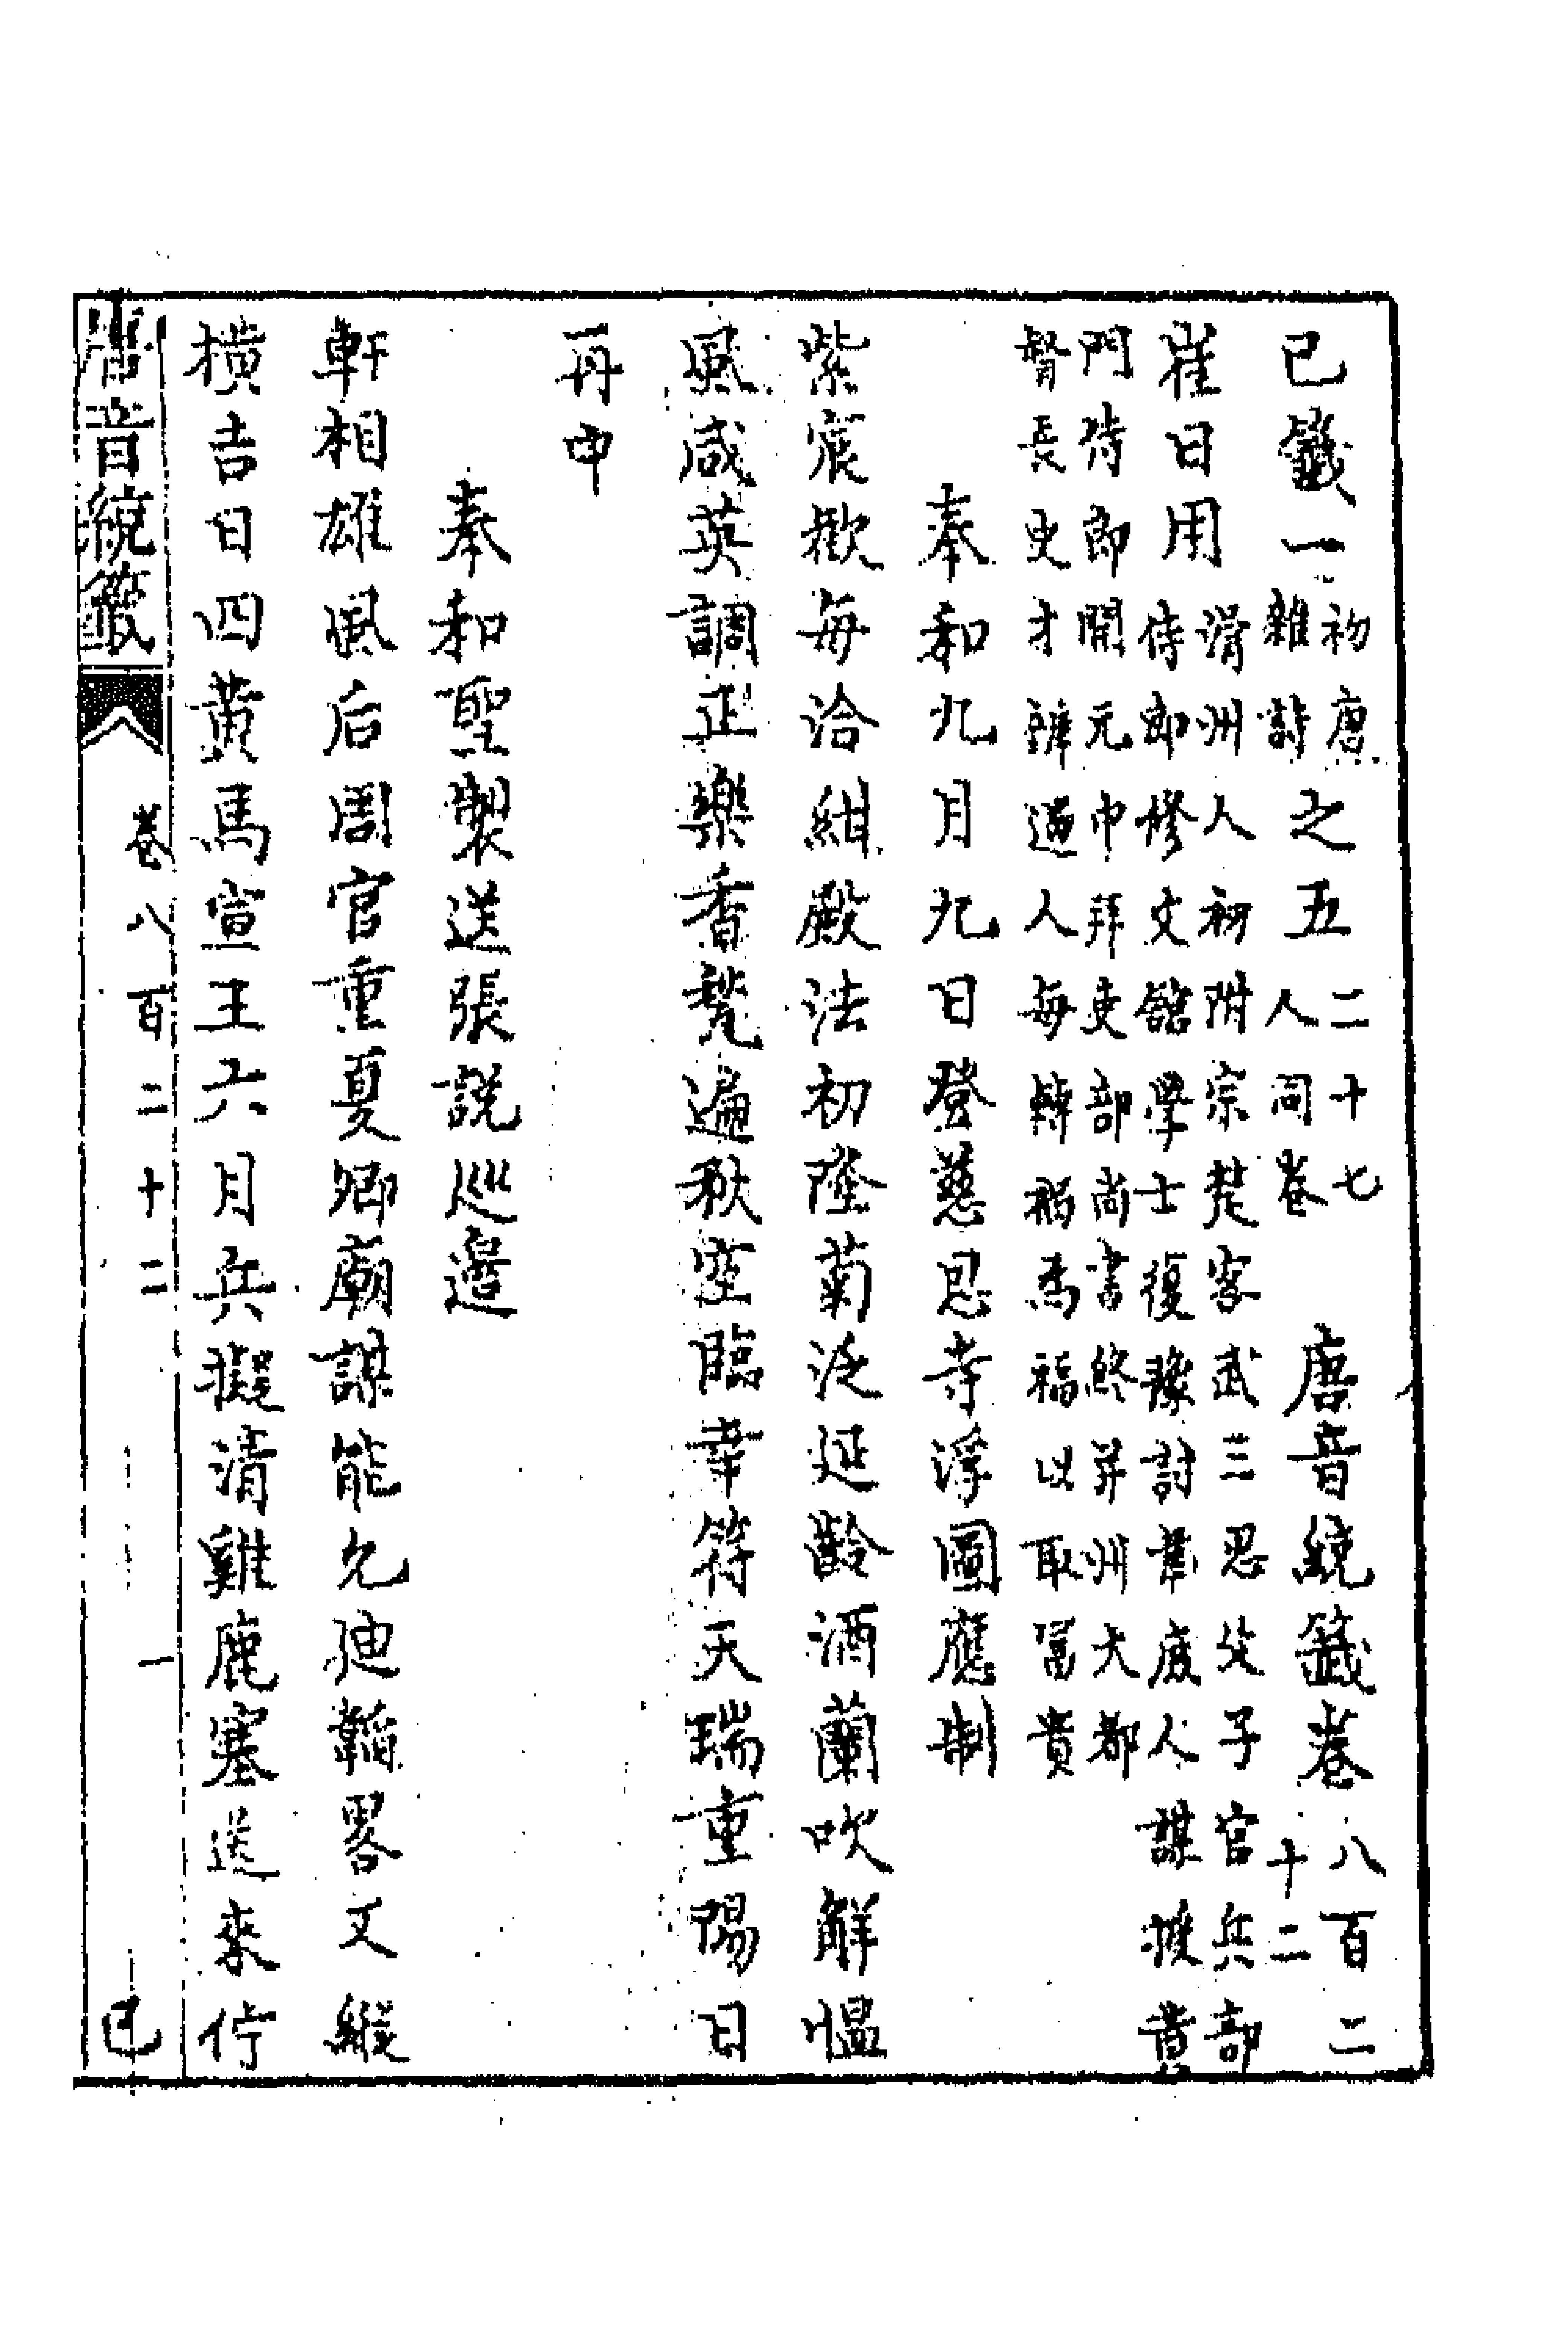 己籤一初唐雜詩之五二十七人同卷 唐音統籤卷八百二十二
崔日用滑州人初附宗楚客武三思父子官兵部侍郎修文館學士復豫討韋庶人謀拔黃
門侍郎開元中拜吏部尚書終并州大都
督長史才辯過人每轉禍為福以取富貴
奉和九月九日登慈恩寺浮圖應制
紫宸歡每洽紺殿法初隆菊泛延齡酒蘭吹解慍
風咸英調正樂香梵遍秋空臨幸符天瑞重陽日
再中
奉和聖製送張說巡邊
軒相雄風后周官重夏卿廟謀能允迪韜畧文縱
橫吉日四黃馬宣王六月兵擬清雞鹿塞送來佇
唐音統籤 卷八百二十二 一 己